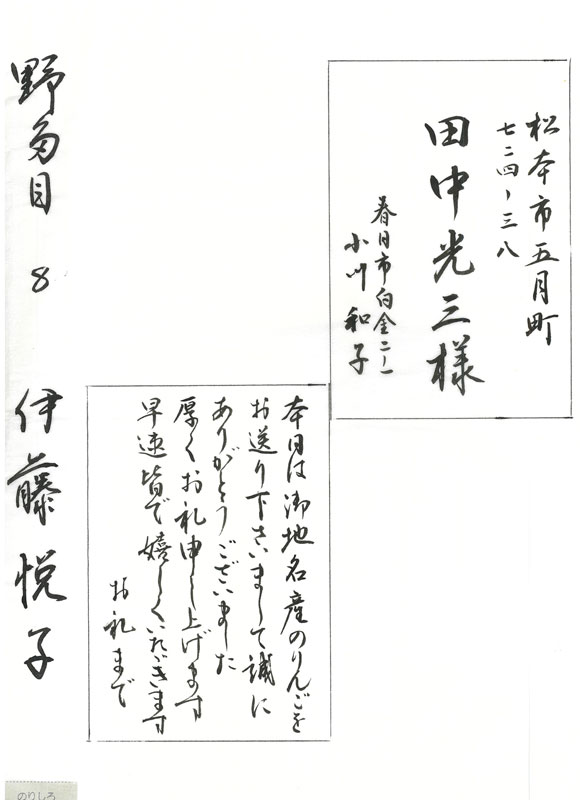 松本市五月町
七二四ー三八
田中光三様
春日市白金二ー一
小川和子
本日は御地名産のりんごを
お送り下さいまして誠に
ありがとうございました
厚くお礼申し上げます
早速皆で嬉しくいただきます
お礼まで
野多目 8 伊藤悦子
のりしろ